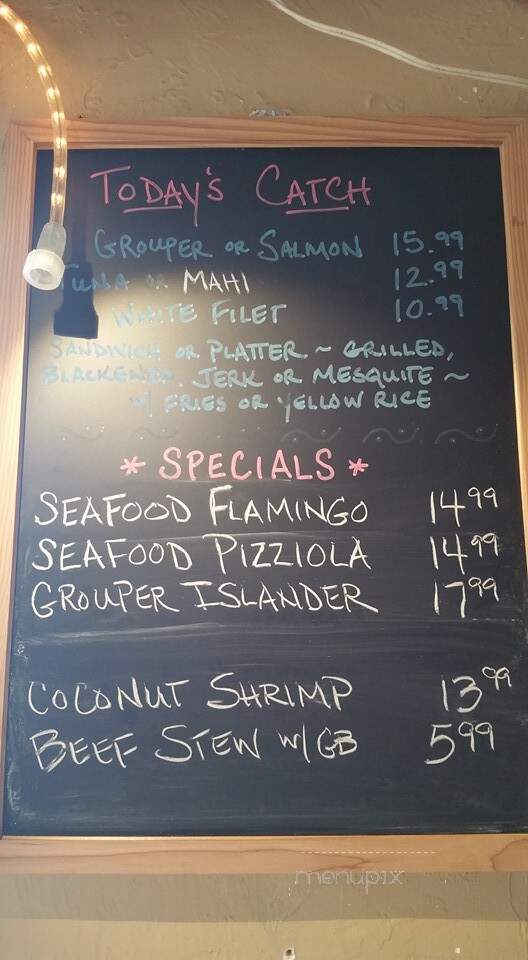 TODAY'S CATCH
GROUPER OR SALMON 15.99
TUNA OR MAHI 12.99
WHITE FILET 10.99
SANDWICH OR PLATTER ~ GRILLED,
BLACKENED, JERK OR MESQUITE ~
W/ FRIES OR YELLOW RICE
* SPECIALS *
SEAFOOD FLAMINGO 14 99
SEAFOOD PIZZIOLA 14 99
GROUPER ISLANDER 17 99
COCONUT SHRIMP 13 99
BEEF STEW W/ GB 5 99
menupix